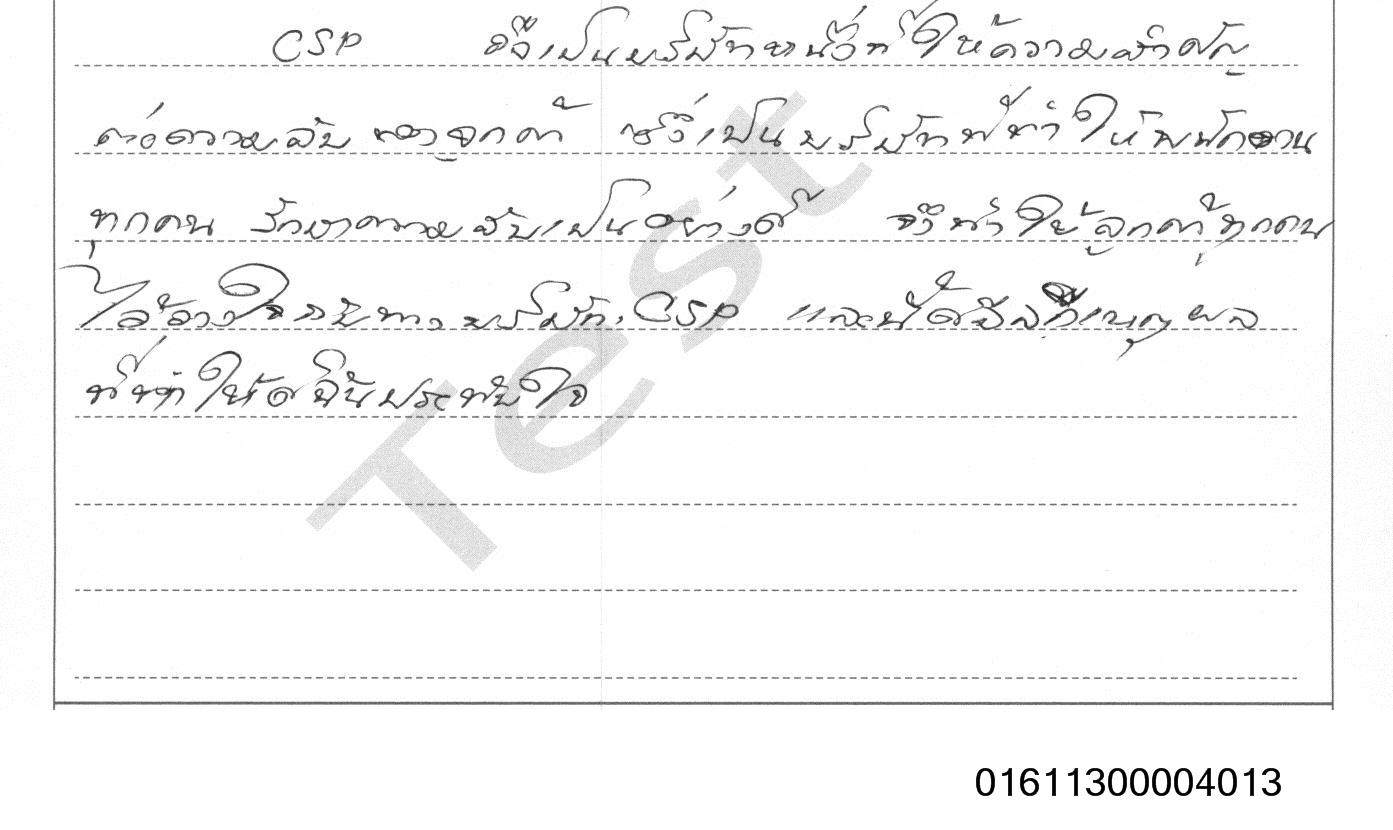 CSP ถือเป็นบริษัทหนึ่งที่ให้ความสำคัญ
ต่อความลับของลูกค้า ซึ่งเป็นบริษัทที่ทำให้พนักงาน
ทุกคน รักษาความลับเป็นอย่างดี จึงทำให้ลูกค้าทุกคน
ไว้วางใจกับทางบริษัท CSP และนี่คืออีก เหตุผล
ที่ทำให้ดิฉันประทับใจ
Test
01611300004013